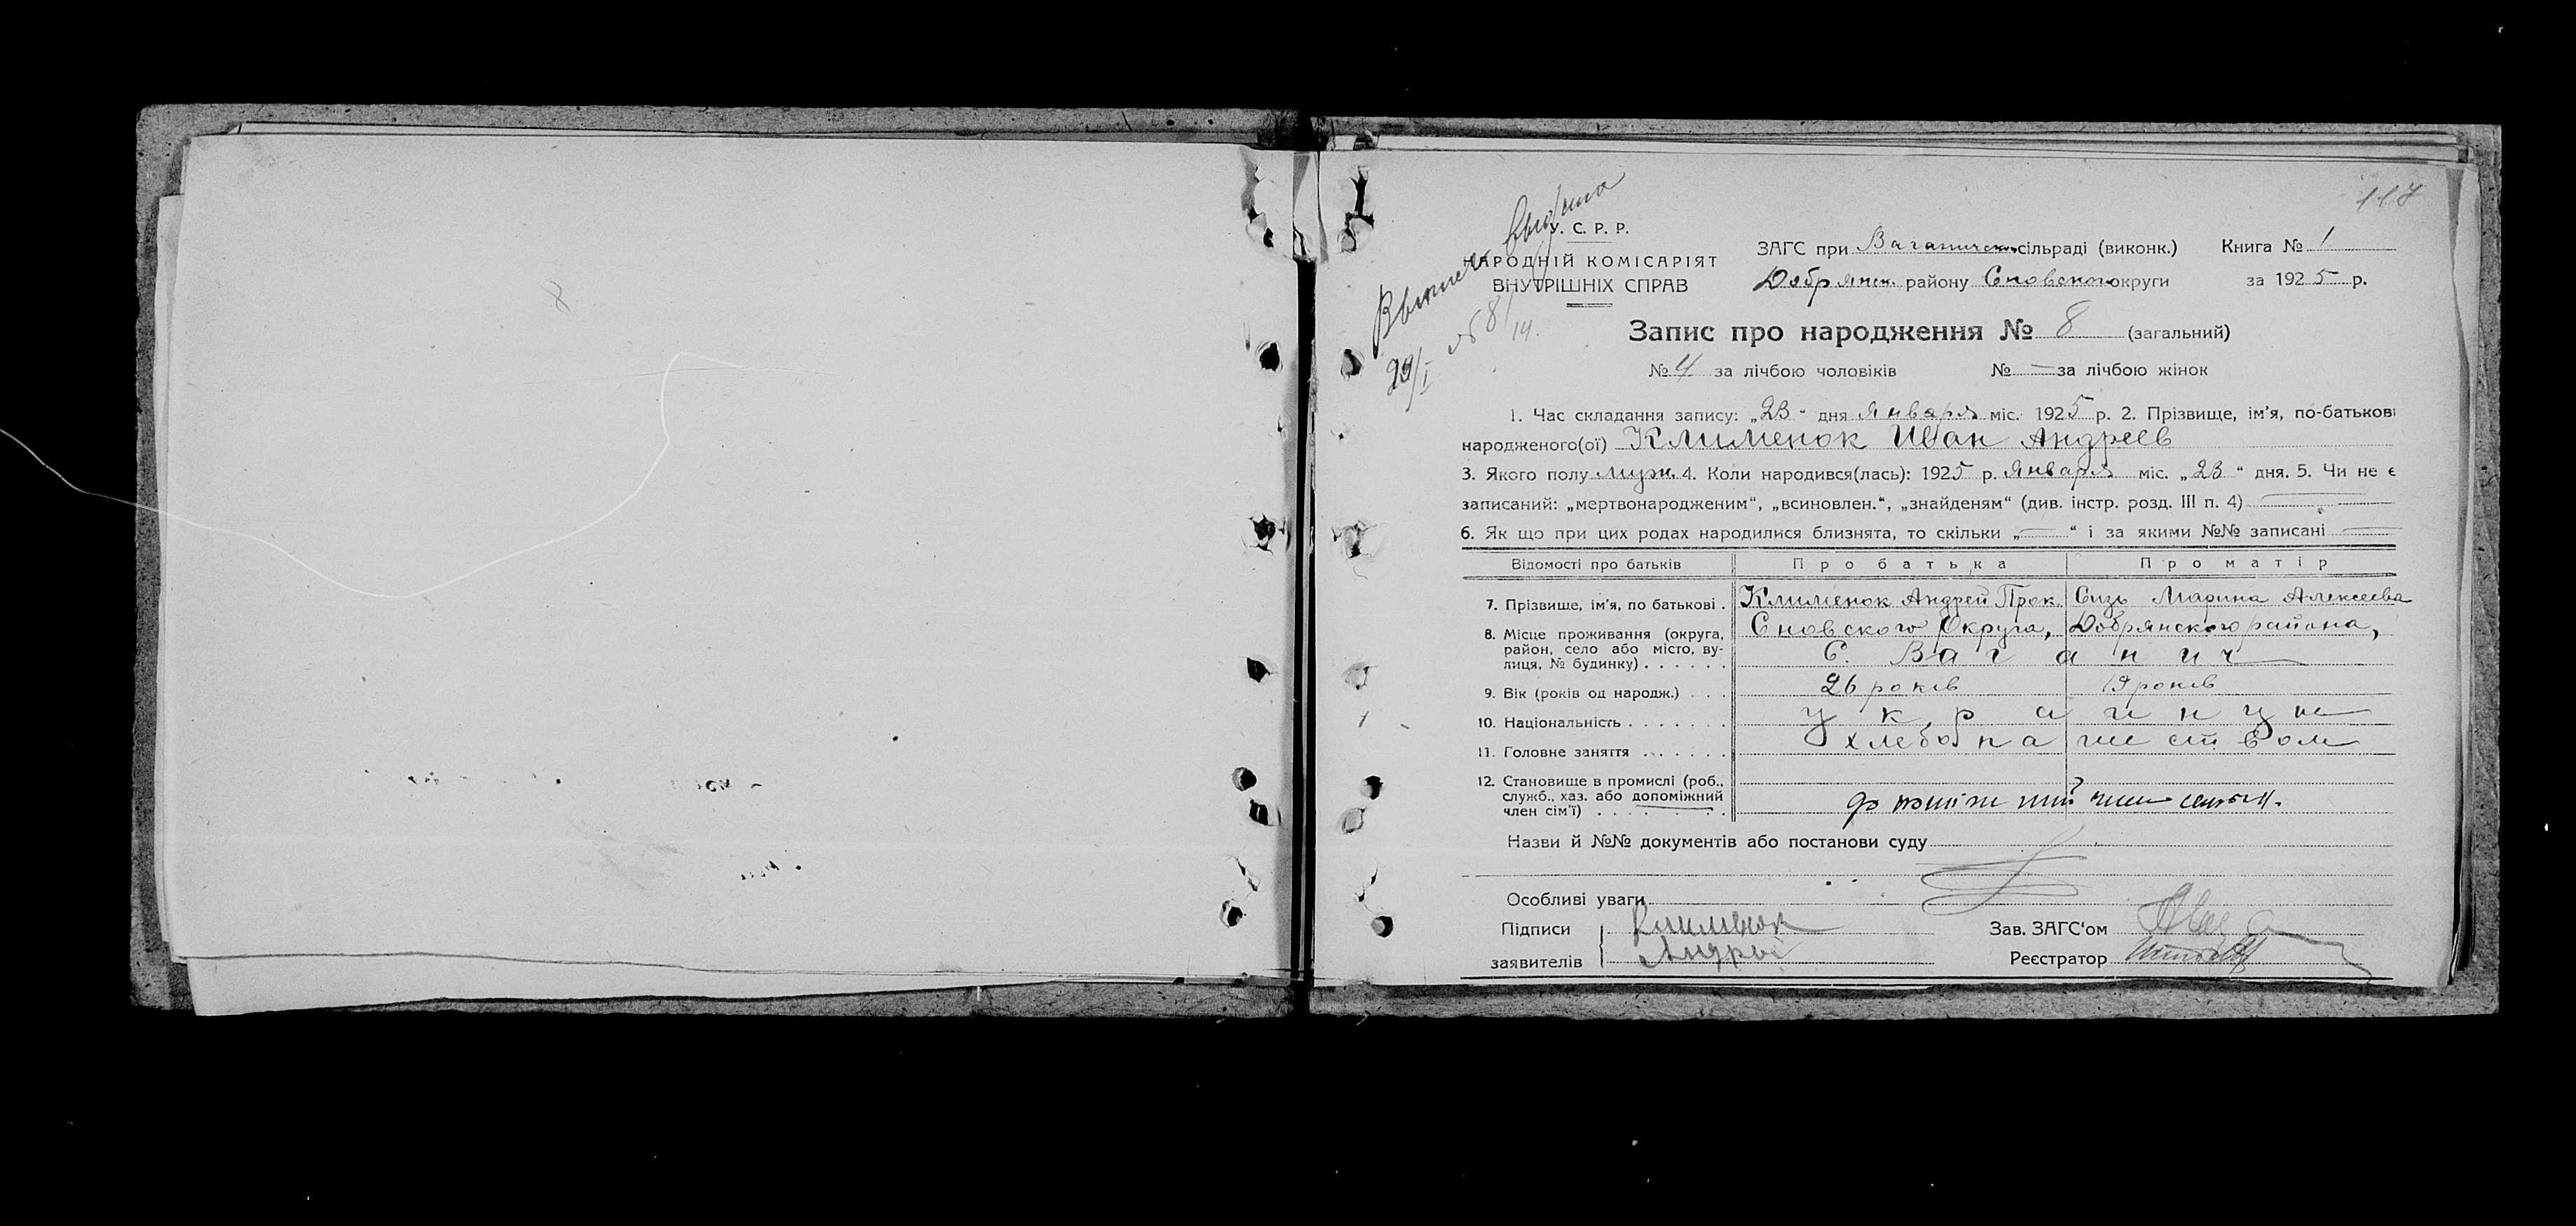 8
117
Выписка выдана
29/I № 8/14.
У. С. Р. Р.
НАРОДНІЙ КОМІСАРІЯТ
ВНУТРІШНІХ СПРАВ
ЗАГС при Ваганическ. сільраді (виконк.) Книга № 1
Добрянск. району Сновского округи за 1925 р.
Запис про народження № 8 (загальний)
№ 4 за лічбою чоловіків № — за лічбою жінок
1. Час складання запису: „23“ дня Января міс. 1925 р. 2. Прізвище, ім'я, по-батькові
народженого(ої) Клименок Иван Андреев
3. Якого полу муж. 4. Коли народився(лась): 1925 р. Января міс. „23“ дня. 5. Чи не є
записаний: „мертвонародженим“, „всиновлен.“, „знайденям“ (див. інстр. розд. III п. 4) —
6. Як що при цих родах народилися близнята, то скільки „—“ і за якими №№ записані —
Відомості про батьків Про батька Про матір
7. Прізвище, ім'я, по батькові . Клименок Андрей Прок. Сизь Марина Алексеева
8. Місце проживання (округа, Сновского Округа, Добрянского района,
район, село або місто, ву-
лиця, № будинку) . . . . . . С. Ваганич
9. Вік (років од народж.) . . . 26 років 19 років
10. Національність . . . . . . . украинцы
11. Головне заняття . . . . . . хлебопашеством
12. Становище в промислі (роб.,
служб., хаз. або допоміжний
член сім'ї) . . . . . . . . .
Назви й №№ документів або постанови суду
Особливі уваги
Підписи Клименок Зав. ЗАГС'ом
заявителів Андрей Реєстратор